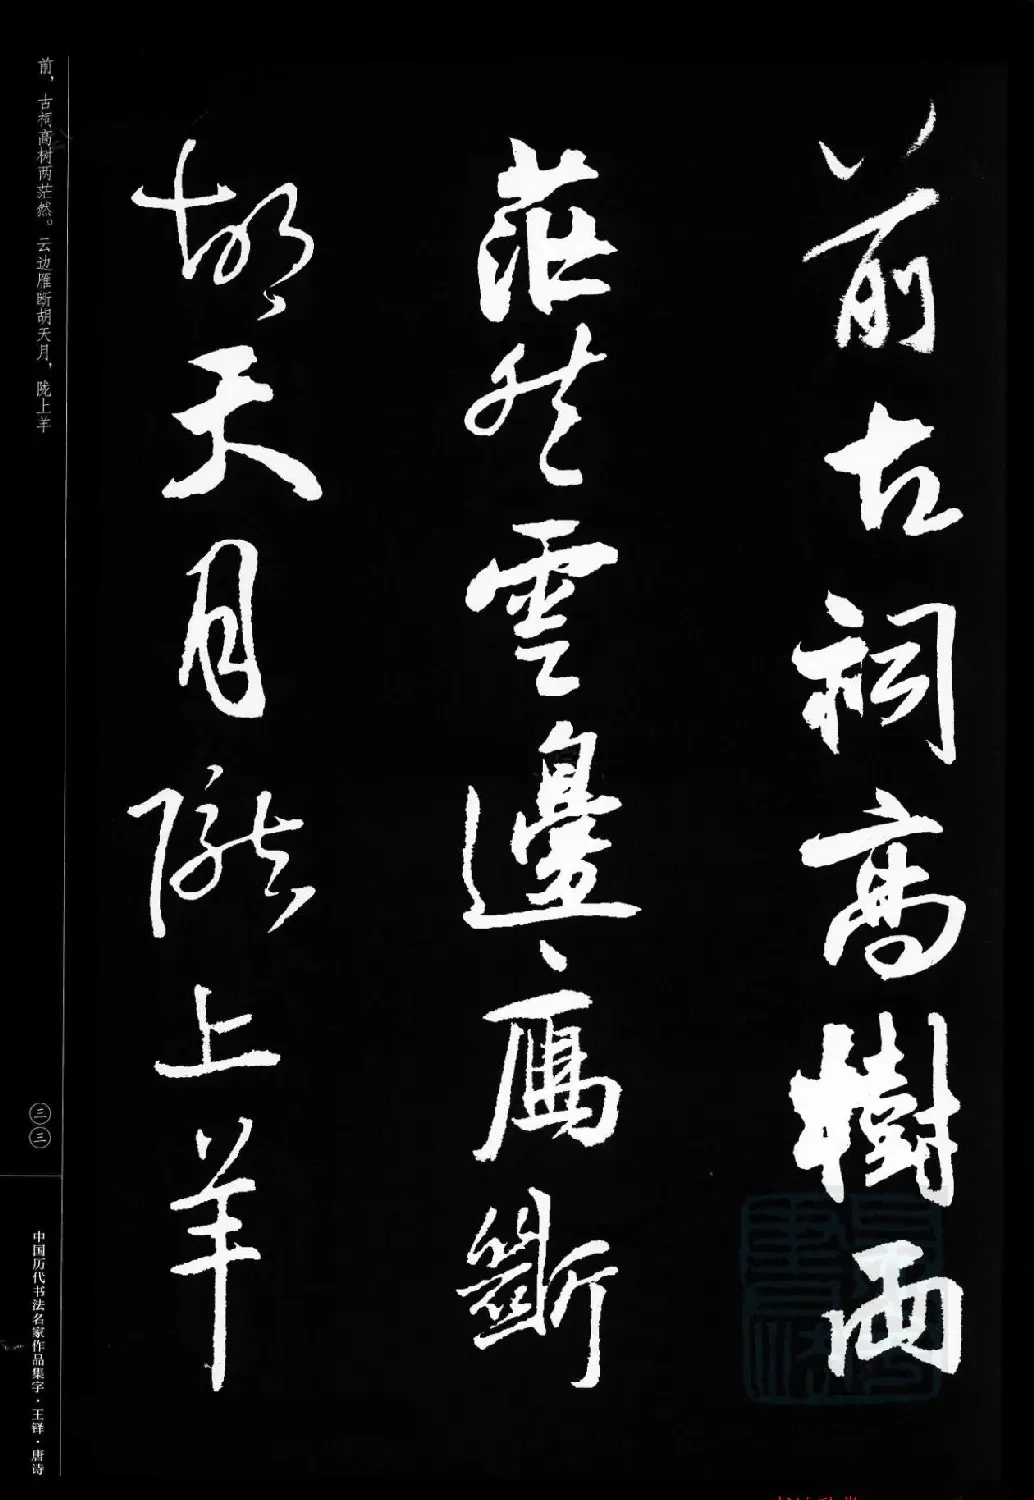 前古祠高樹兩
茫然雲邊鴈斷
胡天月隴上羊
前，古祠高树两茫然。云边雁断胡天月，陇上羊
三三
中国历代书法名家作品集字·王铎·唐诗